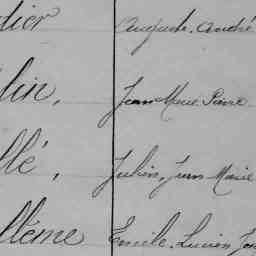 dier Auguste. André
lin, Jean Marie Pierre
llé, Julien, Jean Marie
llème Emile. Lucien Jos